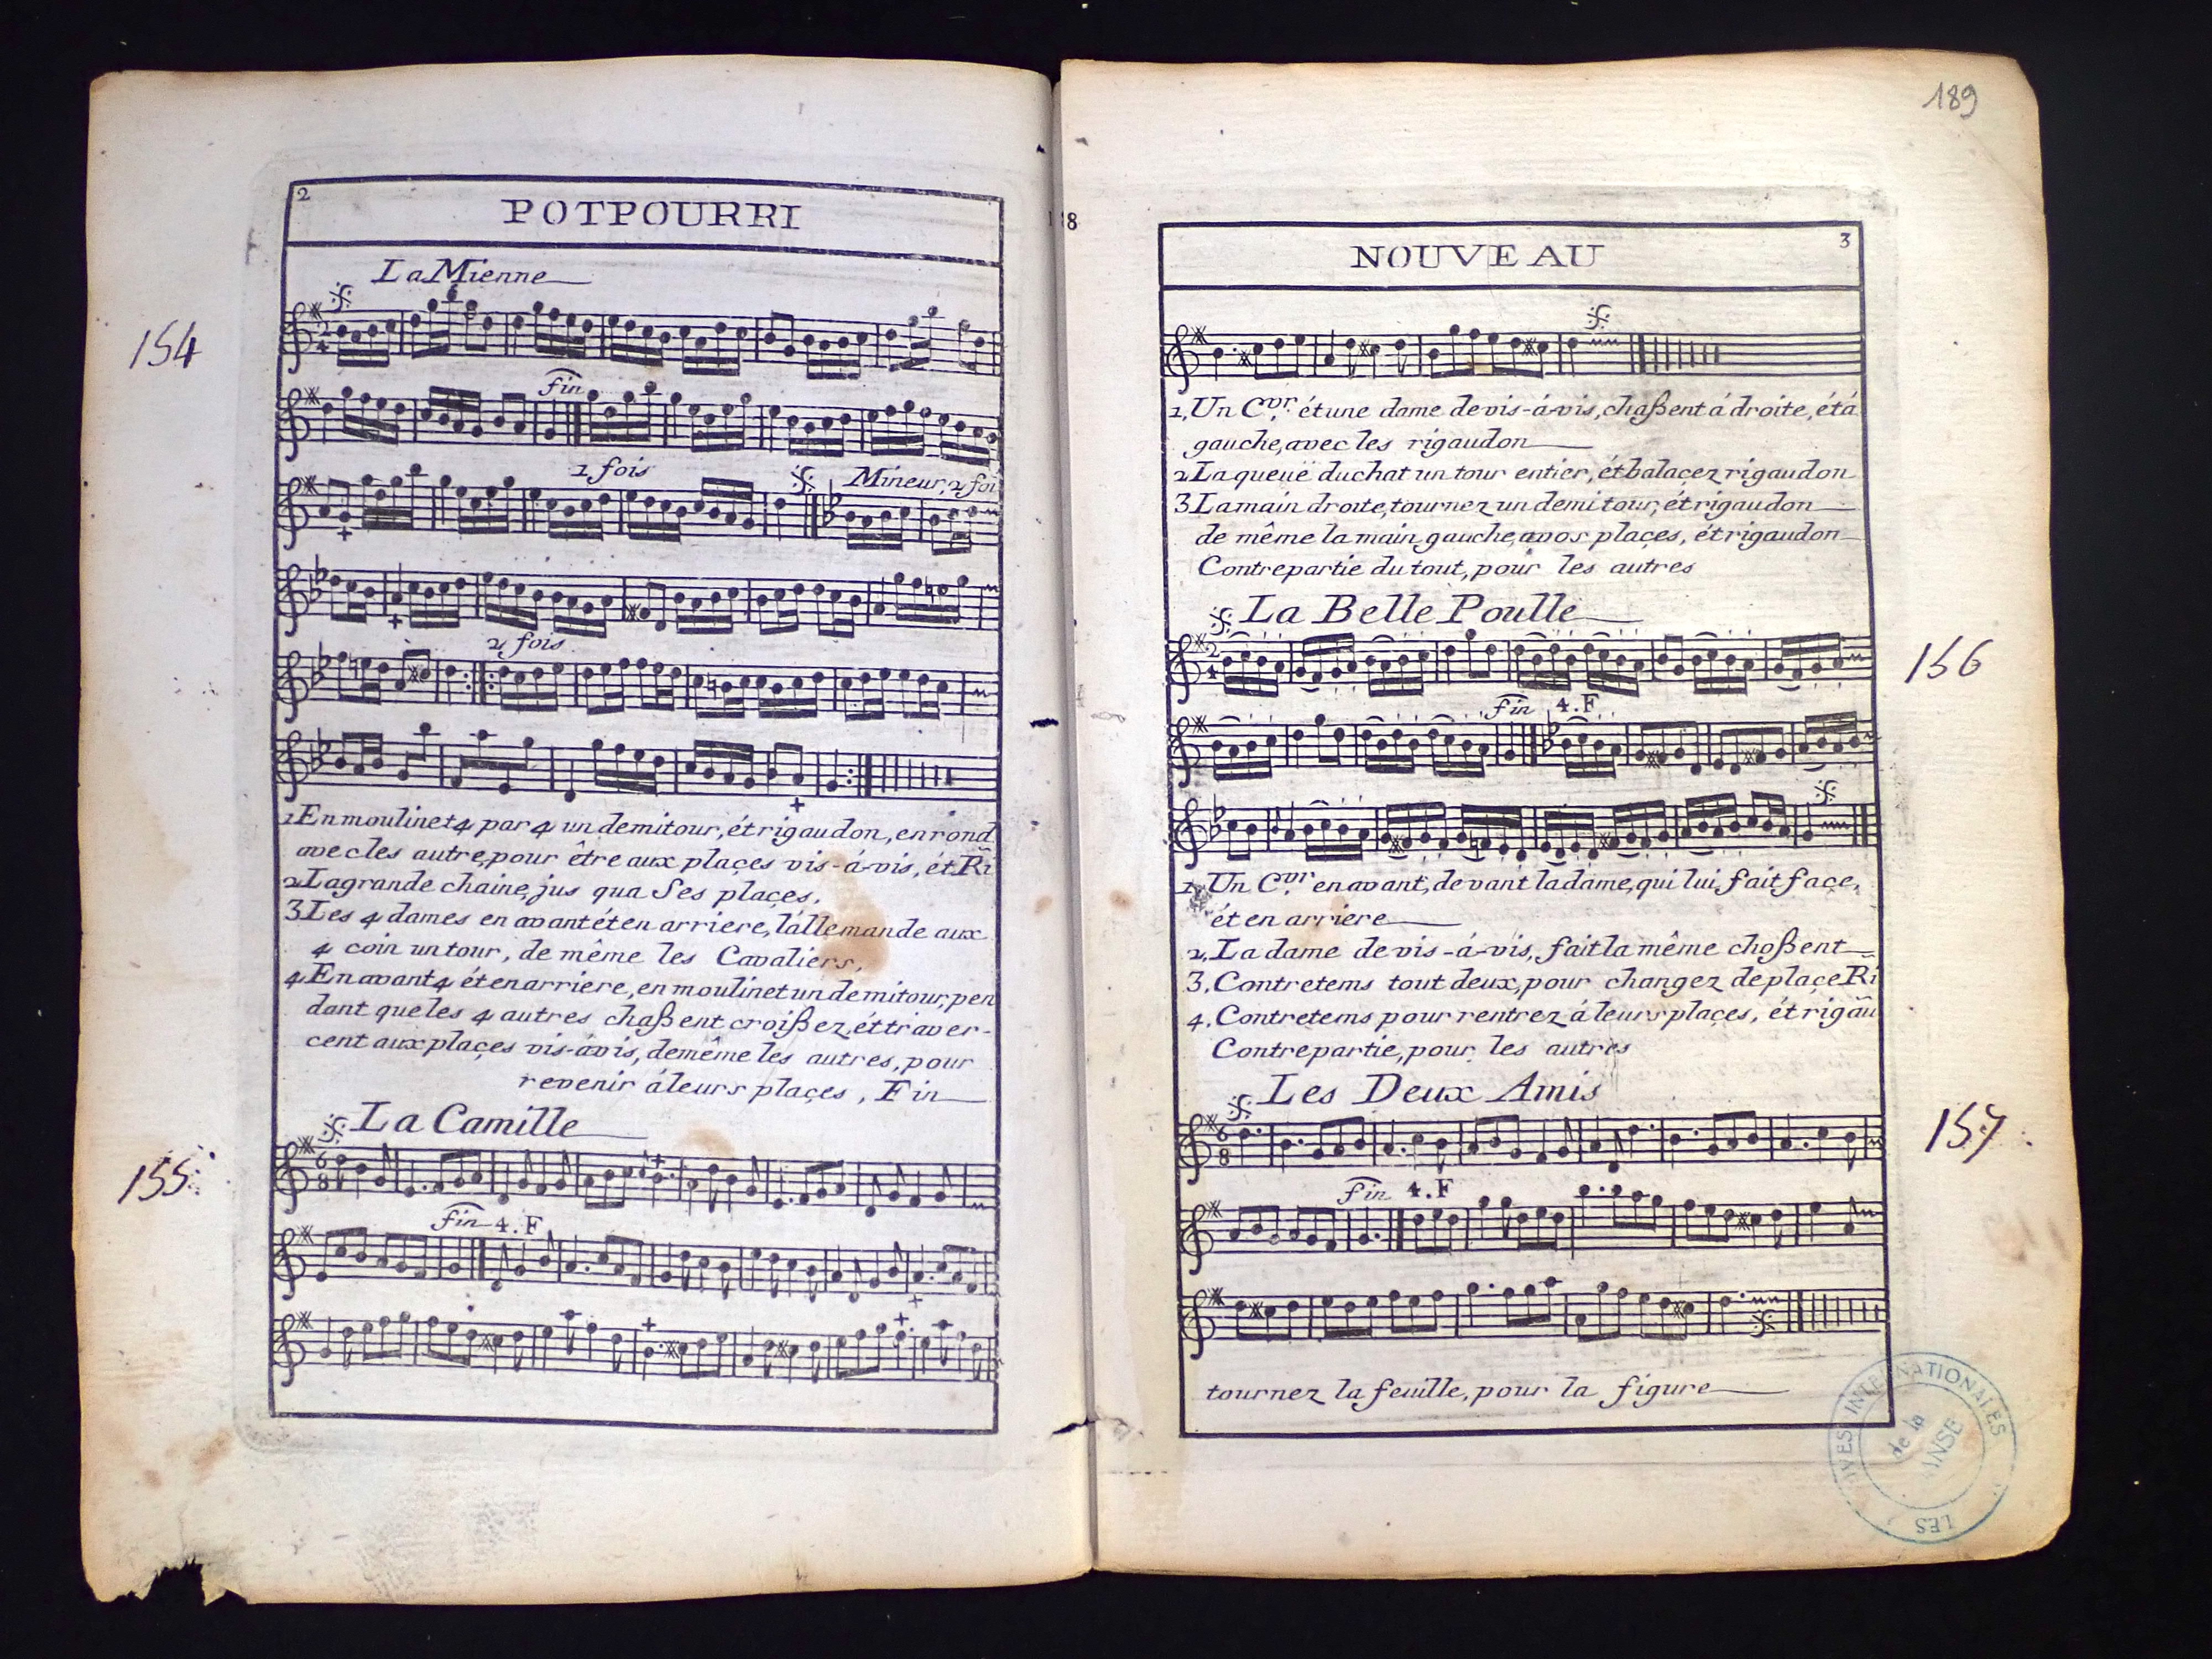 2
POTPOURRI
La Mienne
154
fin
1 fois
Mineur, 2 foi
2 fois
1 En moulinet 4 par 4 un demi tour, ét rigaudon, en rond
avec les autre, pour être aux plaçes vis-á-vis, ét Ri
2 La grande chaine, jus qua Ses plaçes,
3 Les 4 dames en avant ét en arriere, l'állemande aux
4 coin un tour, de même les Cavaliers,
4 En avant 4 ét en arriere, en moulinet un demi tour, pen
dant que les 4 autres chaßent croißez, ét traver-
cent aux plaçes vis-ávis, de même les autres, pour
revenir á leurs plaçes, Fin
La Camille
155
6 8
fin 4.F
189
NOUVEAU
3
1, Un Cvr. ét une dame de vis-á-vis, chaßent á droite, ét á
gauche, avec les rigaudon
2 La queuë du chat un tour entier, ét balaçez rigaudon
3 La main droite, tournez un demi tour, ét rigaudon
de même la main gauche, avos plaçes, ét rigaudon
Contrepartie du tout, pour les autres
La Belle Poulle
156
2 4
fin 4.F
1, Un Cvr. en avant, devant la dame, qui lui, fait façe,
ét en arriere
2, La dame de vis-á-vis, fait la même choßent
3, Contretems tout deux, pour changez de plaçe Ri
4, Contretems pour rentrez á leurs plaçes, ét rigau
Contrepartie, pour les autres
Les Deux Amis
157
6 8
fin 4.F
tournez la feuille, pour la figure
INTERNATIONALES
de la
LES